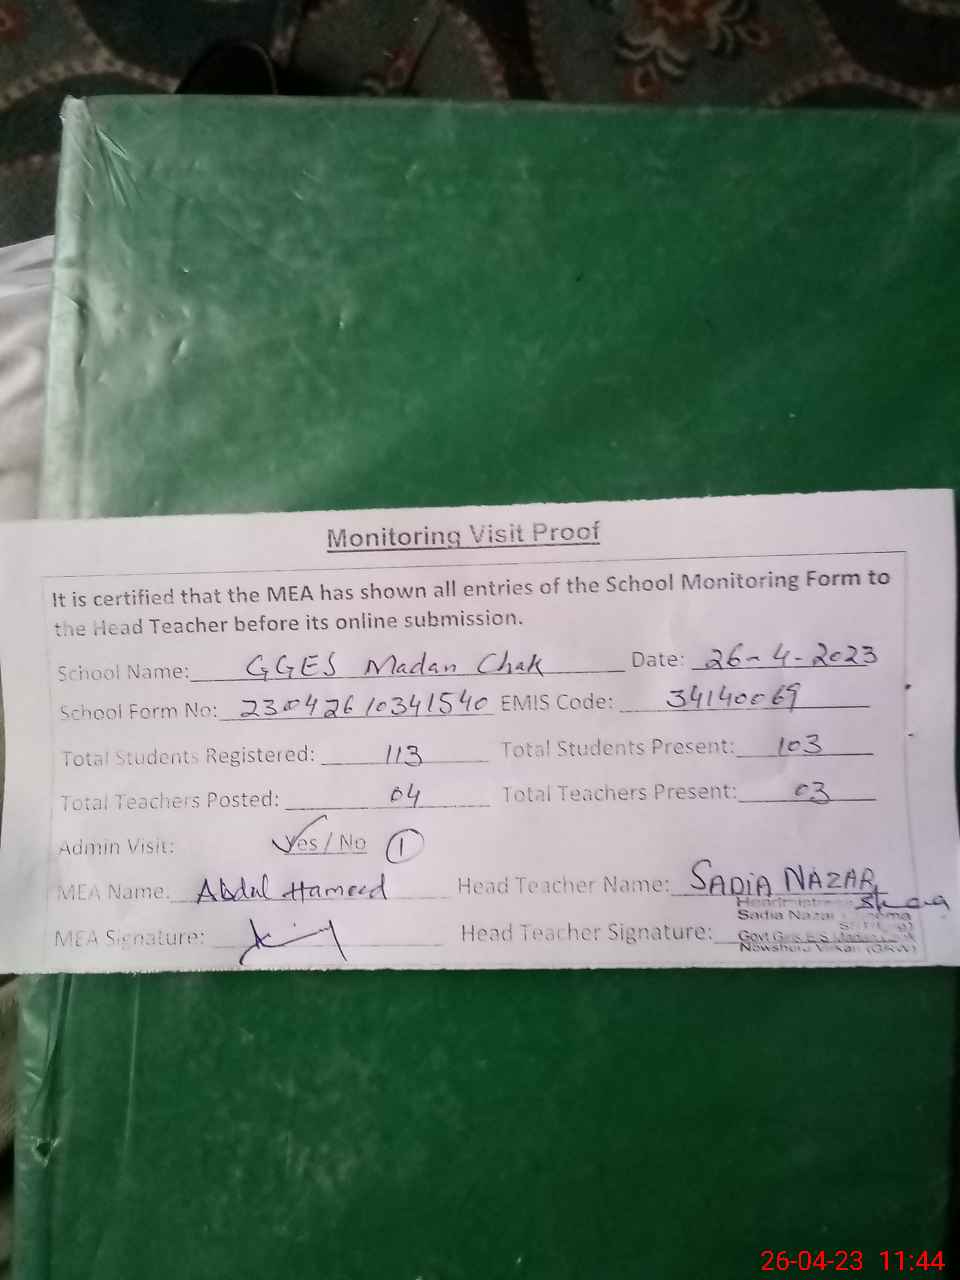 Monitoring Visit Proof
It is certified that the MEA has shown all entries of the School Monitoring Form to
the Head Teacher before its online submission.
School Name: GGES Madan Chak Date: 26-4-2023
School Form No: 23042610341540 EMIS Code: 34140069
Total Students Registered: 113 Total Students Present: 103
Total Teachers Posted: 04 Total Teachers Present: 03
Admin Visit: Yes / No 1
MEA Name: Abdul Hameed Head Teacher Name: SADIA NAZAR
MEA Signature: Head Teacher Signature:
Sadia Nazar
Nowshera Virkan (GRW)
26-04-23 11:44